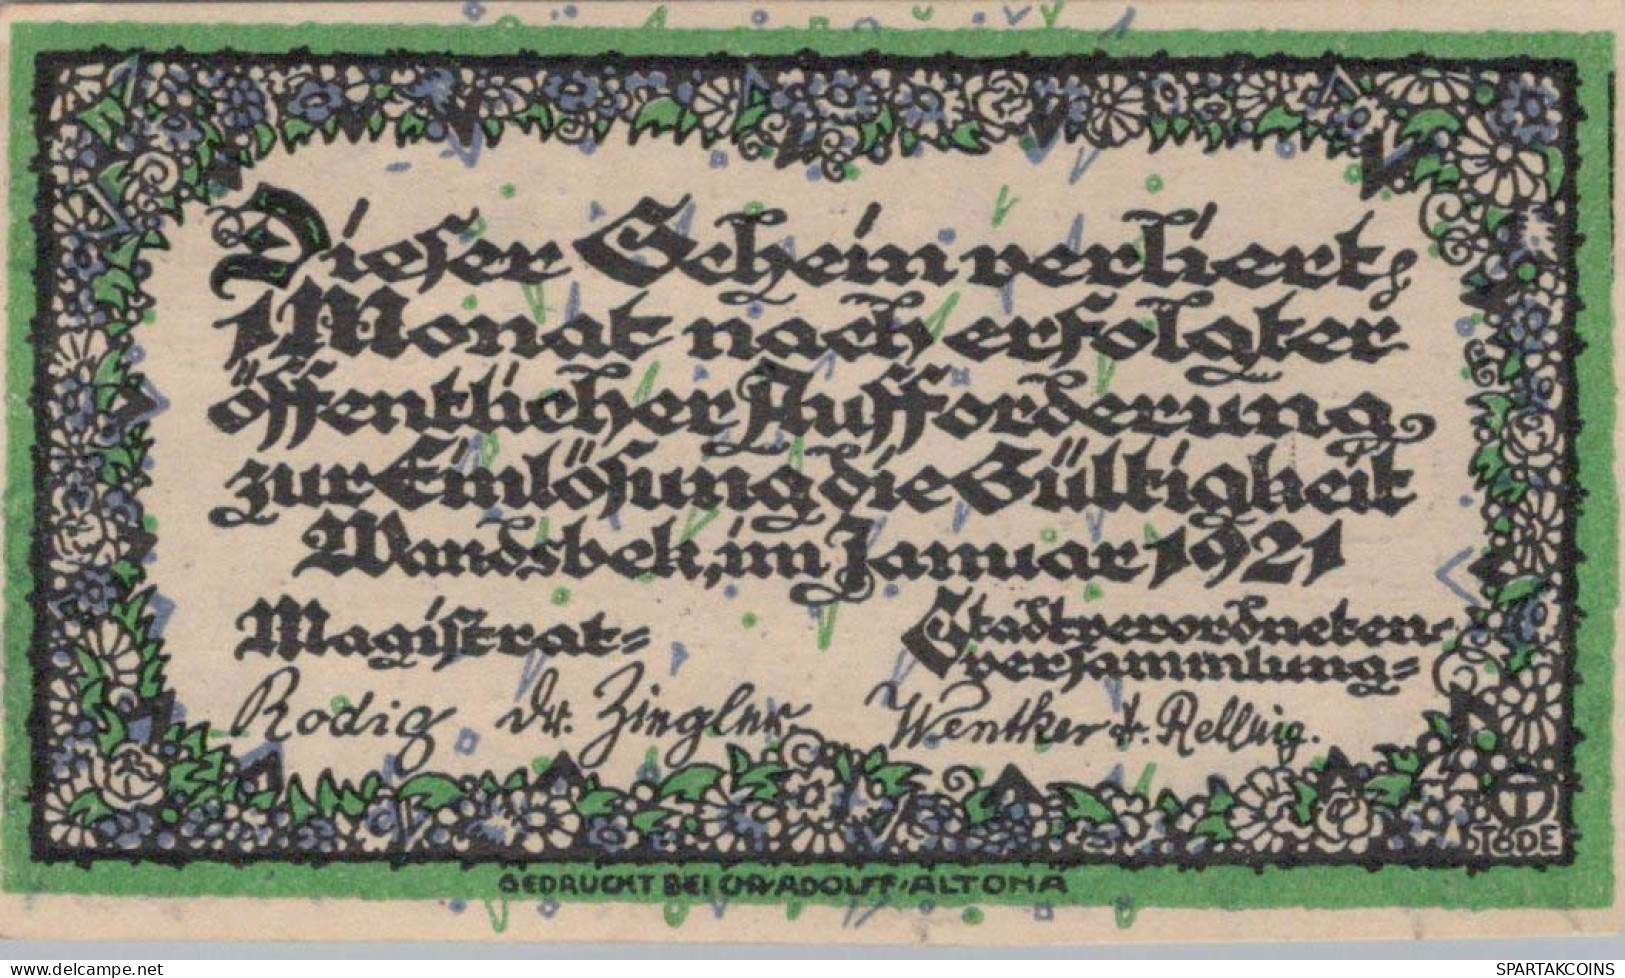 Dieser Schein verliert
1 Monat nach erfolgter
öffentlicher Aufforderung
zur Einlösung die Gültigkeit
Wandsbek, im Januar 1921
Magistrat=
Stadtverordneten-
versammlung=
Rodig Dr. Ziegler
Wentker
TÖDE
GEDRUCKT BEI CHR. ADOLFF, ALTONA
delcampe.net
SPARTAKCOINS